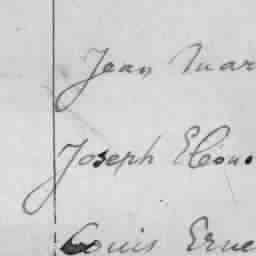 Jean Mar
Joseph Elino
Louis Erne